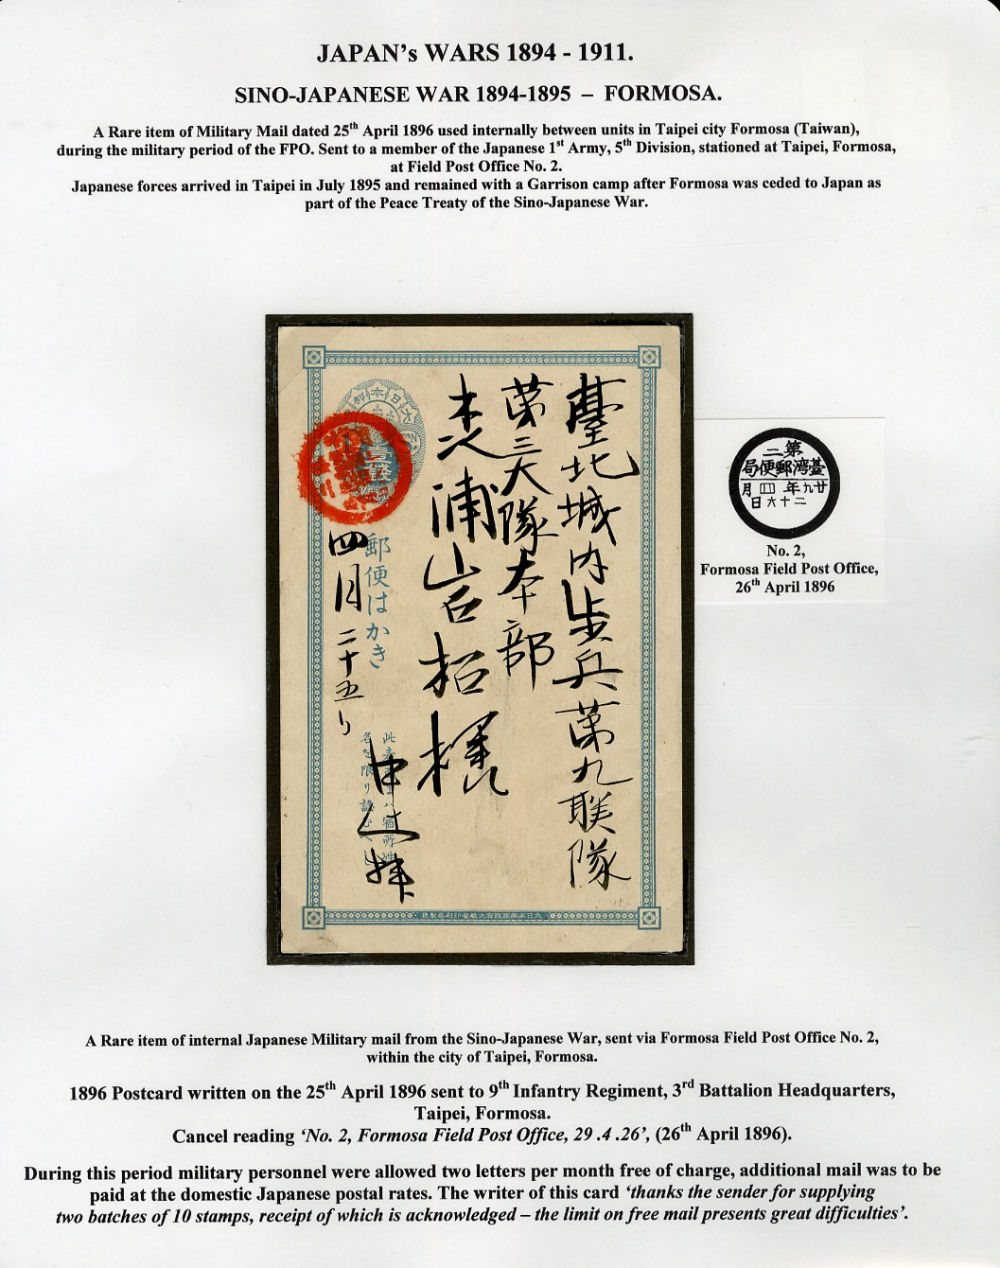 JAPAN's WARS 1894 - 1911.
SINO-JAPANESE WAR 1894-1895 – FORMOSA.
A Rare item of Military Mail dated 25th April 1896 used internally between units in Taipei city Formosa (Taiwan),
during the military period of the FPO. Sent to a member of the Japanese 1st Army, 5th Division, stationed at Taipei, Formosa,
at Field Post Office No. 2.
Japanese forces arrived in Taipei in July 1895 and remained with a Garrison camp after Formosa was ceded to Japan as
part of the Peace Treaty of the Sino-Japanese War.
臺北城内歩兵第九联隊
第三大隊本部
浦岩
様
四月二十五日
郵便はかき
壹錢
第二
臺湾郵便局
廿九年四月
二十六日
No. 2,
Formosa Field Post Office,
26th April 1896
A Rare item of internal Japanese Military mail from the Sino-Japanese War, sent via Formosa Field Post Office No. 2,
within the city of Taipei, Formosa.
1896 Postcard written on the 25th April 1896 sent to 9th Infantry Regiment, 3rd Battalion Headquarters,
Taipei, Formosa.
Cancel reading ‘No. 2, Formosa Field Post Office, 29 .4 .26’, (26th April 1896).
During this period military personnel were allowed two letters per month free of charge, additional mail was to be
paid at the domestic Japanese postal rates. The writer of this card ‘thanks the sender for supplying
two batches of 10 stamps, receipt of which is acknowledged – the limit on free mail presents great difficulties’.